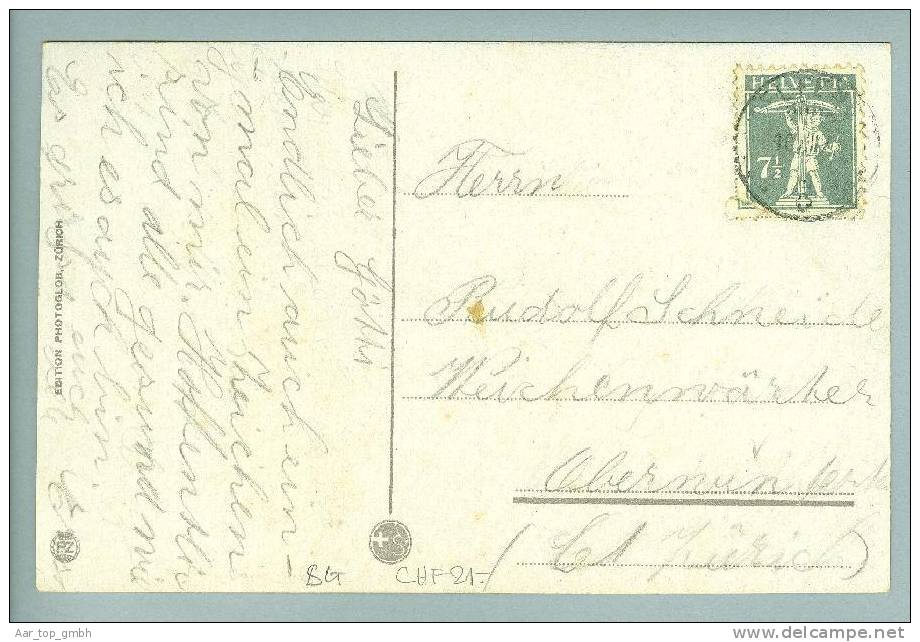 Lieber Götti
Endlich auch ein-
mal ein Zeichen
von mir. Hoffendlich
sind alle gesund wie
ich es auch bin.
Es grüsst euch
EDITION PHOTOGLOB, ZÜRICH
HELVETIA
7½
Herrn
Rudolf Schneider
Weichenwärter
Oberwinterth
(Ct. Zürich)
BG
CHF 21.-
Aar_top_gmbh
www.delcampe.net